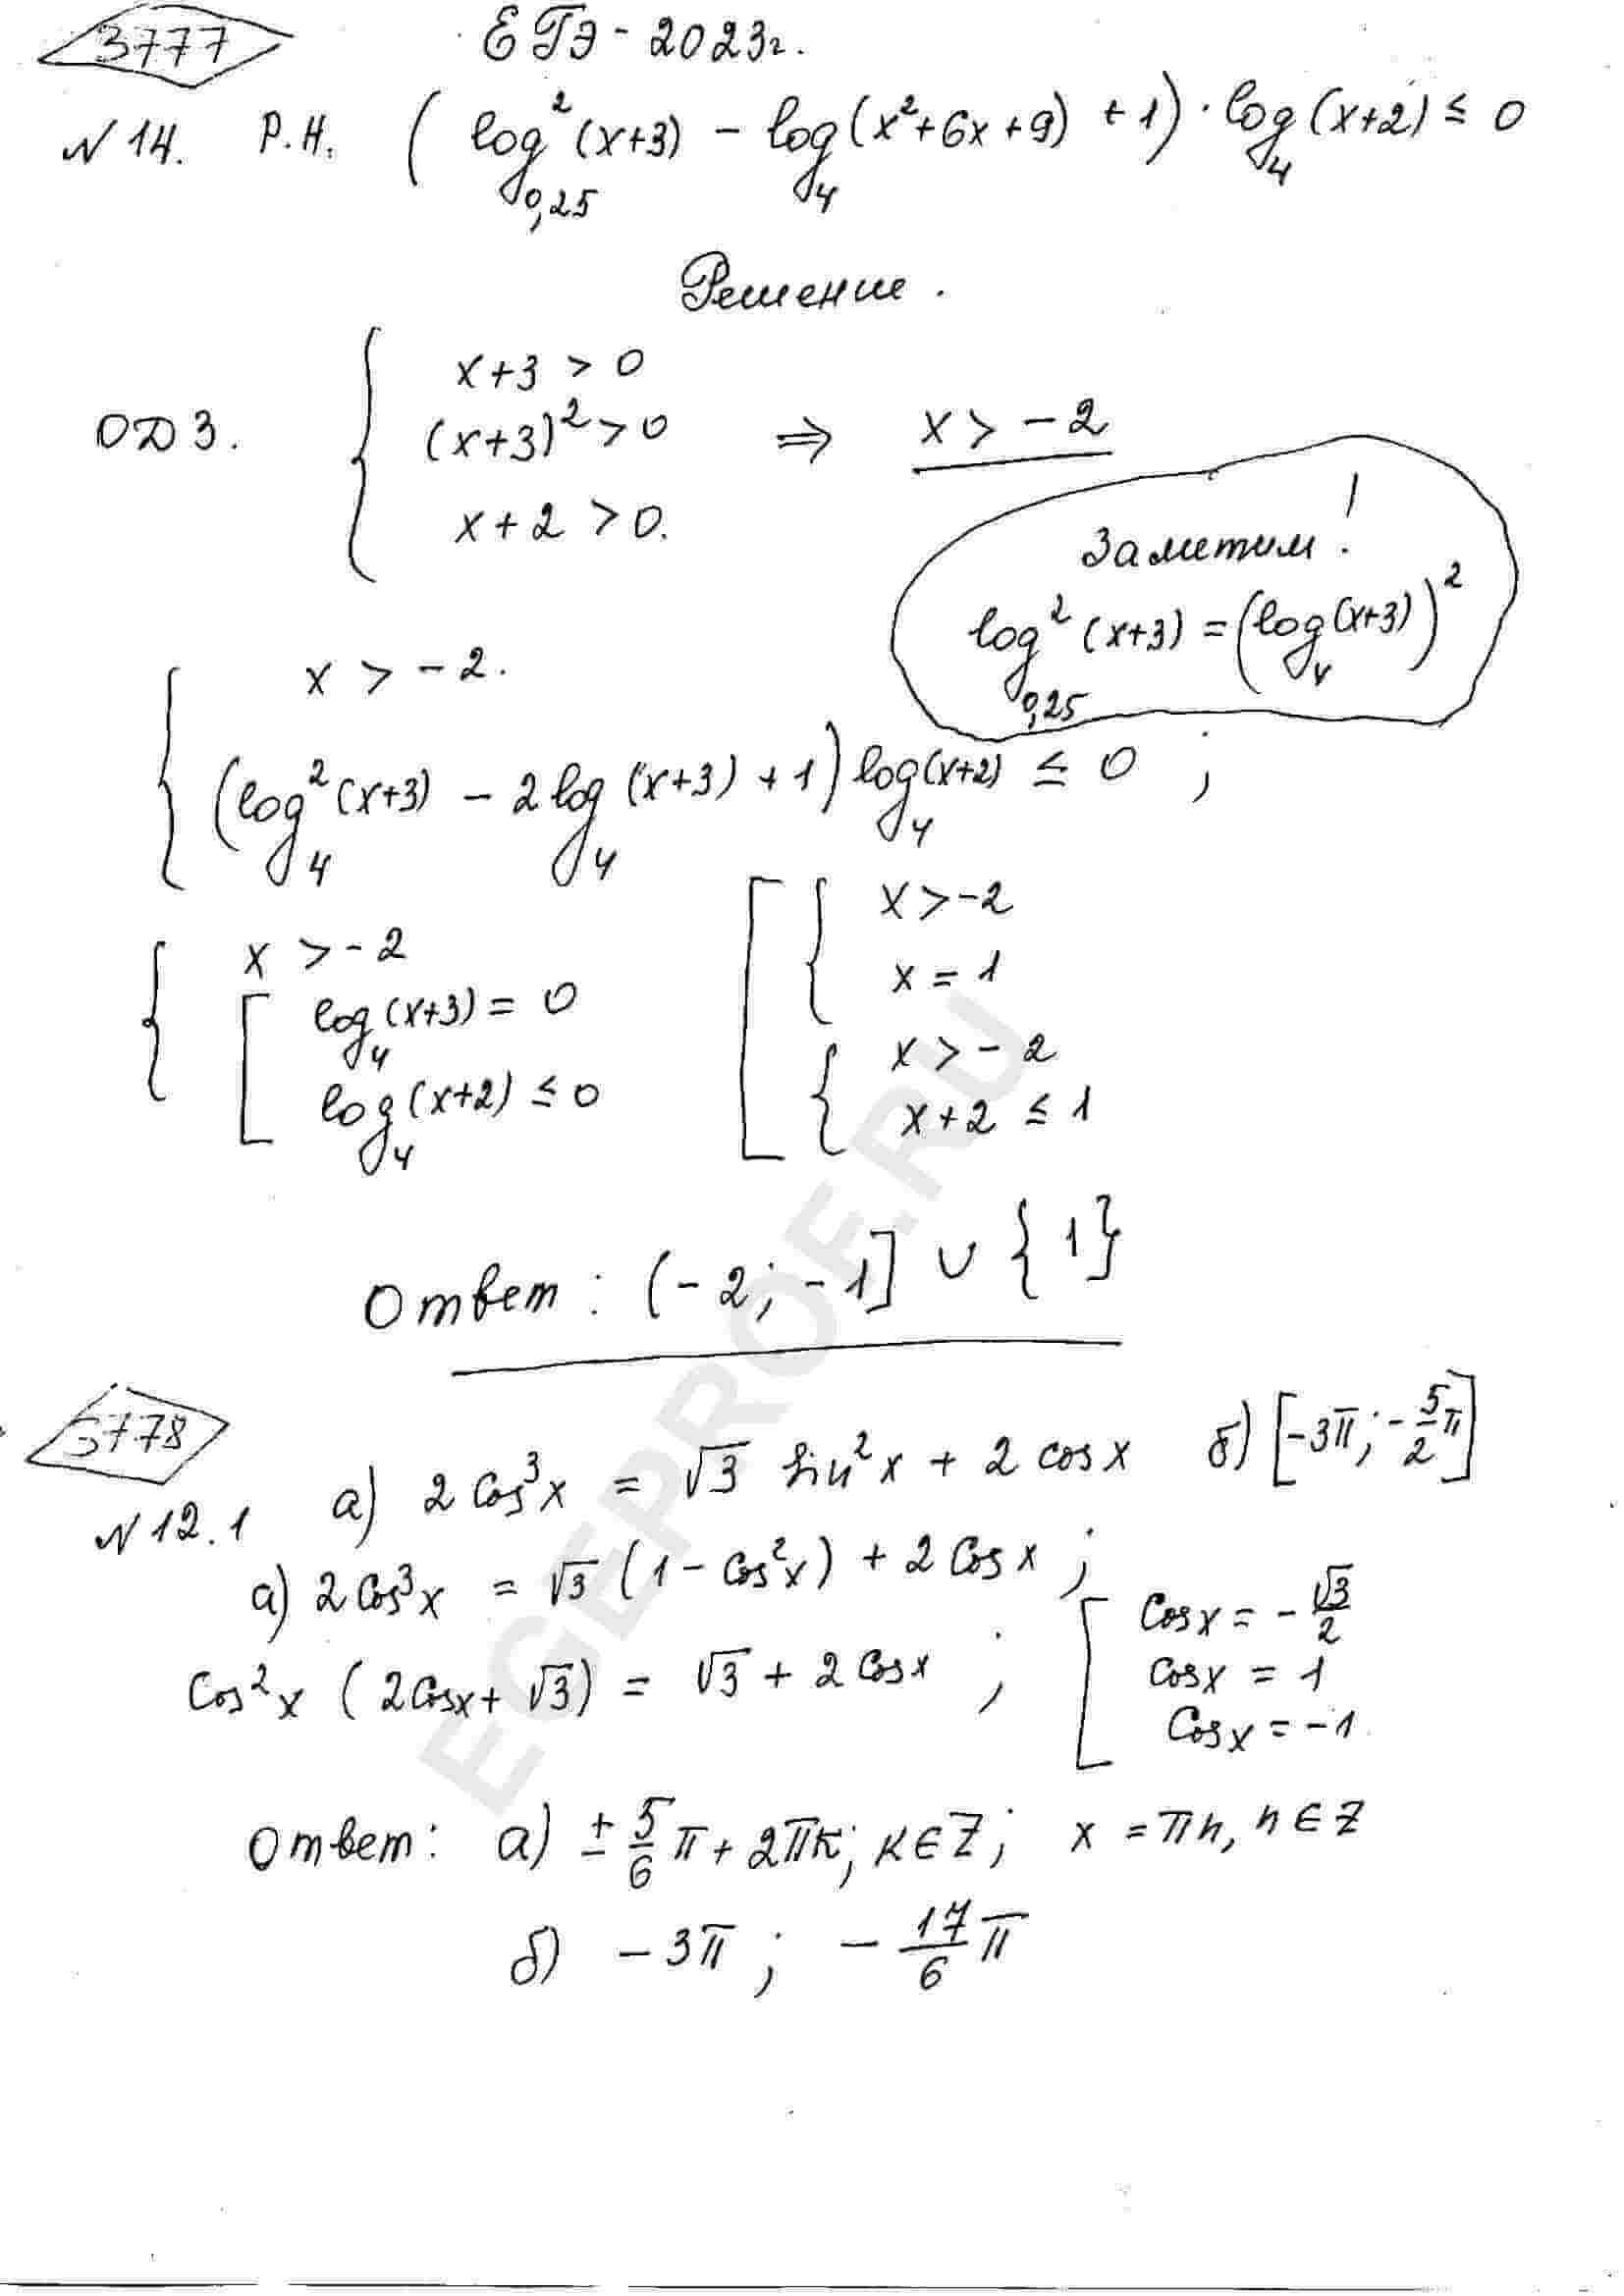 3777 ЕГЭ - 2023г.
N 14. Р.Н. (log²_{0,25}(x+3) - log_4(x²+6x+9) + 1) · log_4(x+2) ≤ 0
Решение.
ОДЗ. { x+3 > 0
(x+3)² > 0 ⇒ x > -2
x+2 > 0.
Заметим!
log²_{0,25}(x+3) = (log_4(x+3))²
{ x > -2.
(log²_4(x+3) - 2log_4(x+3) + 1) log_4(x+2) ≤ 0 ;
{ x > -2
[ log_4(x+3) = 0
log_4(x+2) ≤ 0
[ { x > -2
x = 1
{ x > -2
x+2 ≤ 1
Ответ: (-2; -1] ∪ {1}
3778
N 12.1 а) 2Cos³x = √3 sin²x + 2 cos x б) [-3π; -5/2 π]
а) 2Cos³x = √3 (1 - Cos²x) + 2 Cos x ;
Cos²x (2Cosx + √3) = √3 + 2 Cosx ;
[ Cosx = -√3/2
Cosx = 1
Cosx = -1
Ответ: а) ± 5/6 π + 2πk; k∈Z; x = πn, n∈Z
б) -3π ; - 17/6 π
EGEPROF.RU